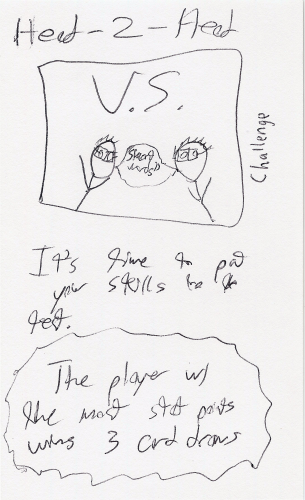 Head-2-Head
V.S.
Challenge
It's time to put
your skills to the
test.
The player w/
the most stat points
wins 3 card draws